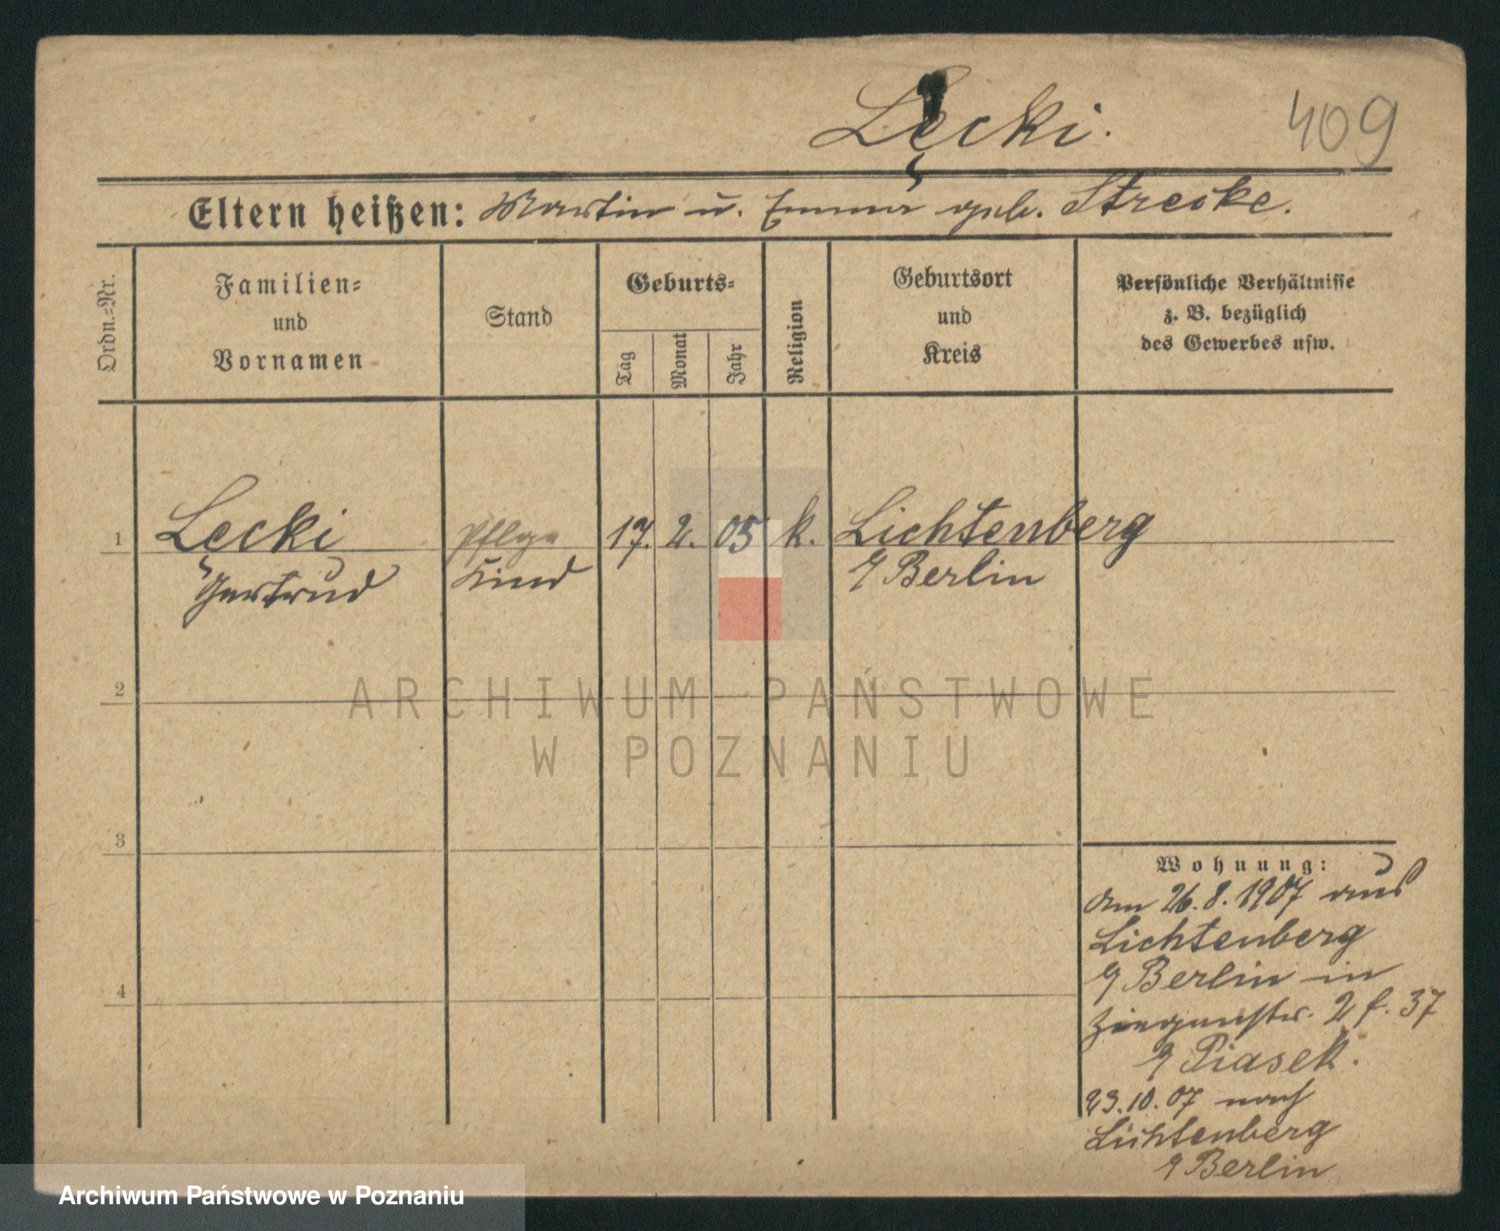 Łęcki.
409
Eltern heißen: Martin u. Emma geb. Strecke.
Ordn.-Nr.
Familien-
und
Vornamen
Stand
Geburts-
Tag
Monat
Jahr
Religion
Geburtsort
und
Kreis
Persönliche Verhältnisse
z. B. bezüglich
des Gewerbes usw.
1
Łęcki
Gertrud
Pflege
Kind
17. 2. 05
k.
Lichtenberg
b/ Berlin
2
3
4
ARCHIWUM PAŃSTWOWE
W POZNANIU
Wohnung:
am 26.8.1907 aus
Lichtenberg
b/ Berlin in
2 f. 37
b/ Piasek.
23.10.07 nach
Lichtenberg
b/ Berlin
Archiwum Państwowe w Poznaniu